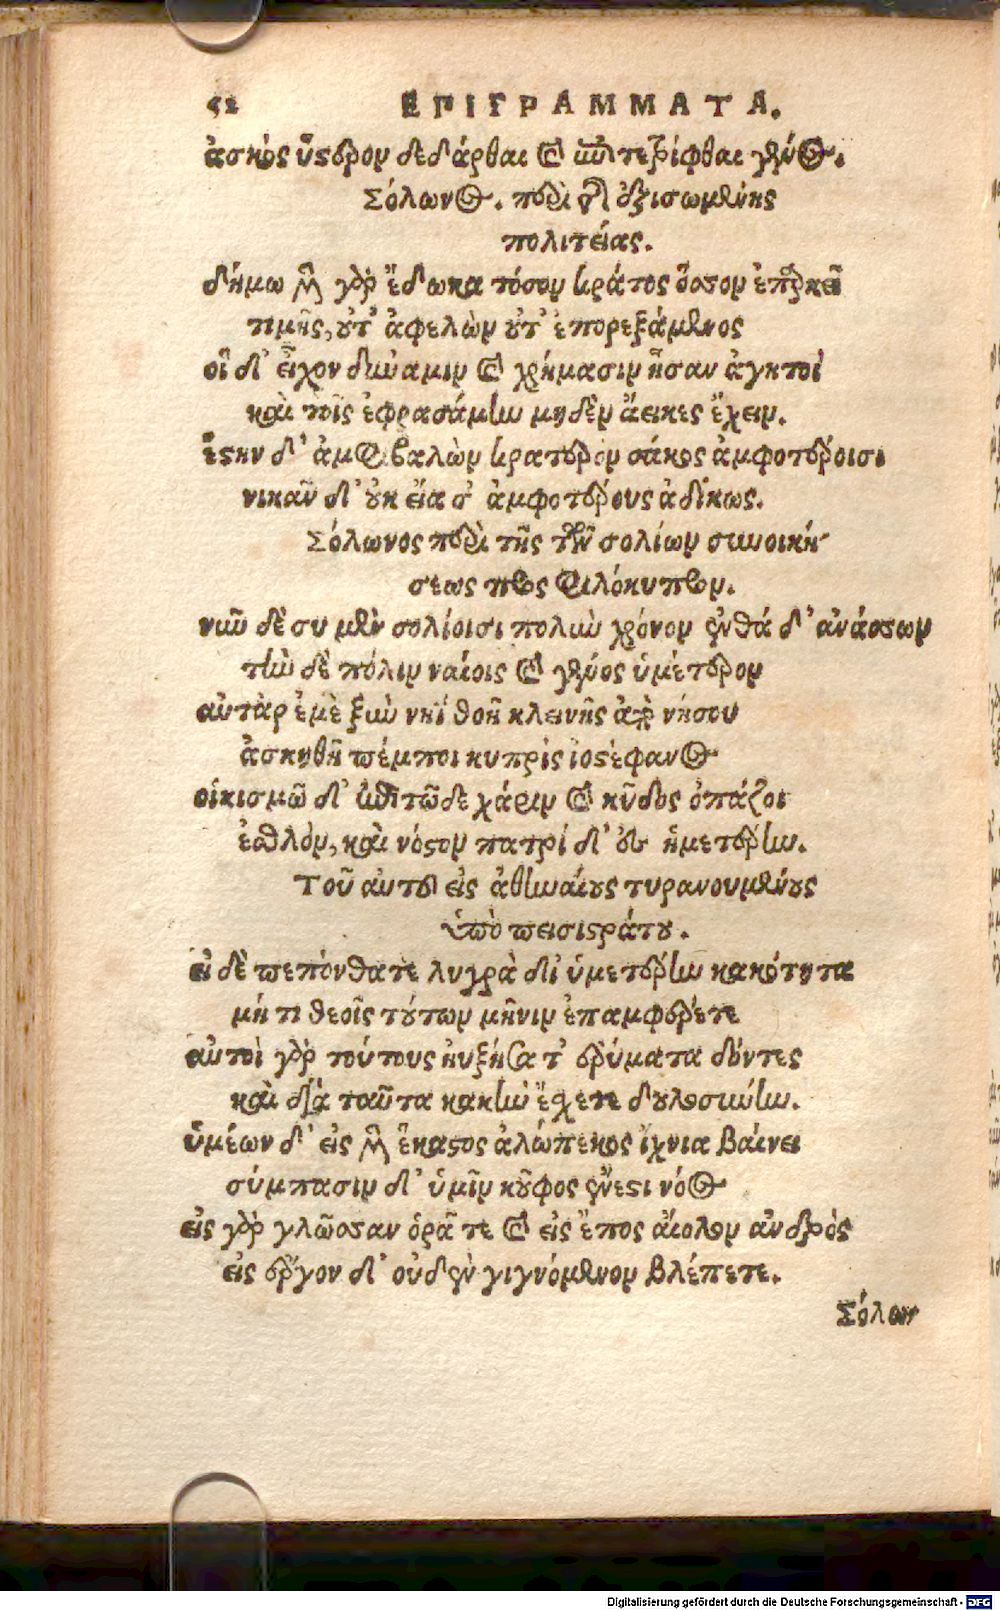 52 ΕΠΙΓΡΑΜΜΑΤΑ.
ἀσκὸς ὕστερον δεδάρθαι καὶ ἐπιτετρίφθαι γένος.
Σόλωνος. περὶ τῆς ἀξισωμένης
πολιτείας.
δήμω μὲν γὰρ ἔδωκα τόσον κράτος ὅσσον ἐπαρκεῖ
τιμῆς, οὔτ' ἀφελὼν οὔτ' ἐπορεξάμενος
οἳ δ' εἶχον δύναμιν καὶ χρήμασιν ἦσαν ἀγητοὶ
καὶ τοῖς ἐφρασάμην μηδὲν ἄεικες ἔχειν.
ἔστην δ' ἀμφιβαλὼν κρατερὸν σάκος ἀμφοτέροισι
νικᾶν δ' οὐκ εἴασ' ἀμφοτέρους ἀδίκως.
Σόλωνος περὶ τῆς τῶν σολίων συνοική
σεως πρὸς φιλόκυπρον.
νῦν δὲ συ μὲν σολίοισι πολὺν χρόνον ἐνθάδ' ἀνάσσων
τὴν δὲ πόλιν ναίοις καὶ γένος ὑμέτερον
αὐτὰρ ἐμὲ ξὺν νηῒ θοῇ κλεινῆς ἀπὸ νήσου
ἀσκηθῆ πέμποι κυπρὶς ἰοστέφανος
οἰκισμῶ δ' ἐπὶ τῶδε χάριν καὶ κῦδος ὀπάζοι
ἐσθλὸν, καὶ νόστον πατρίδ' ἐς ἡμετέρην.
Τοῦ αὐτοῦ εἰς ἀθηναίους τυρανουμένους
ὑπὸ πεισιστράτου.
εἰ δὲ πεπόνθατε λυγρὰ δι' ὑμετέρην κακότητα
μή τι θεοῖς τούτων μῆνιν ἐπαμφέρετε
αὐτοὶ γὰρ τούτους ηὐξήσατ' ἐρύματα δόντες
καὶ διὰ ταῦτα κακὴν ἔχετε δουλοσύνην.
ὑμέων δ' εἰς μὲν ἕκαστος ἀλώπεκος ἴχνια βαίνει
σύμπασιν δ' ὑμῖν κοῦφος ἔνεστι νόος
εἰς γὰρ γλῶσσαν ὁρᾶτε καὶ εἰς ἔπος αἴολον ἀνδρὸς
εἰς ἔργον δ' οὐδὲν γιγνόμενον βλέπετε.
Σόλων
Digitalisierung gefördert durch die Deutsche Forschungsgemeinschaft - DFG